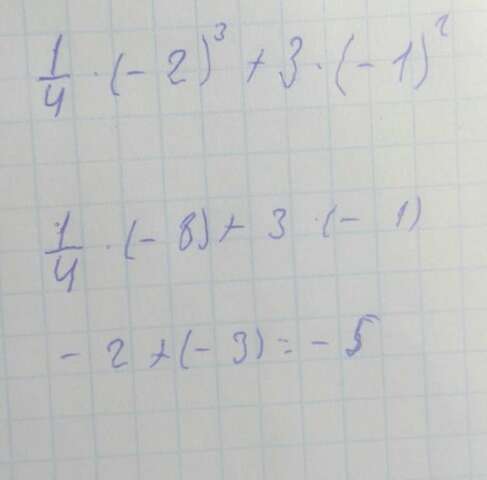 1/4 · (- 2)³ + 3 · (- 1)²
1/4 · (- 8) + 3 · (- 1)
- 2 + (- 3) = - 5